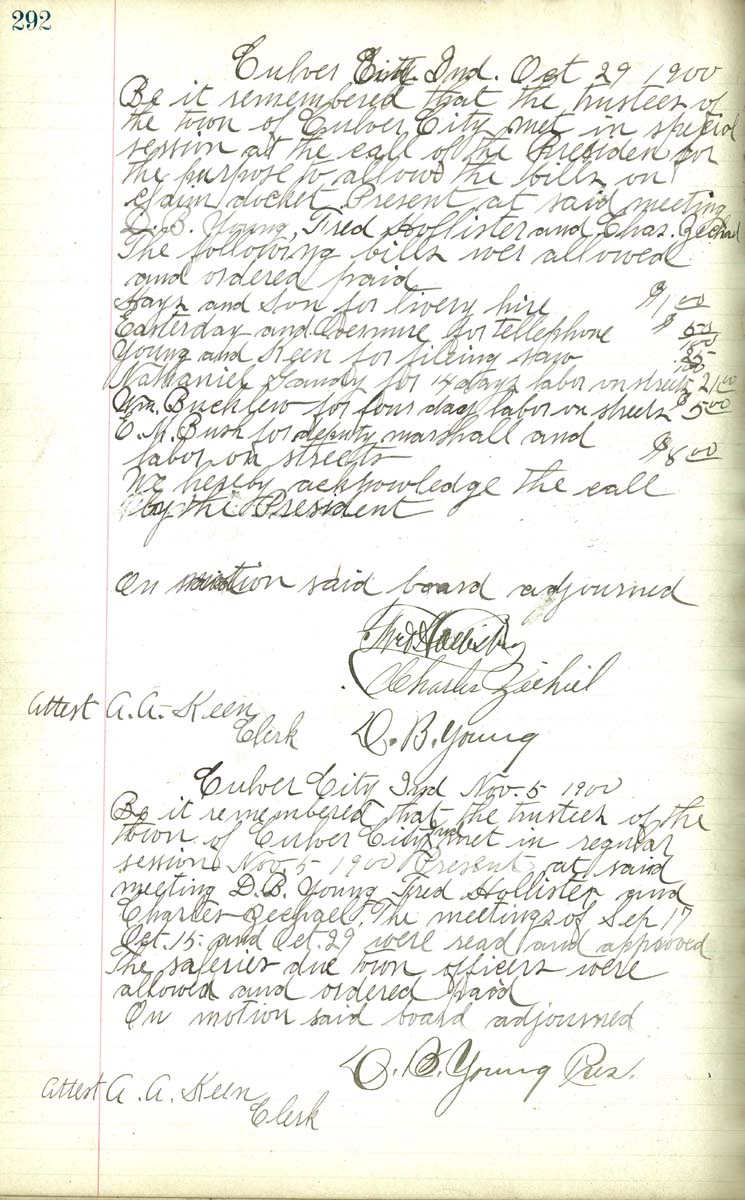 292
Culver City. Ind. Oct 29 1900
Be it remembered that the trustees of
the town of Culver City met in special
session at the call of the President for
the purpose to allow the bills on
claim docket Present at said meeting
D. B. Young, Fred Hollister and Chas. Zechiel
The following bills wer allowed
and ordered paid
Hayz and Son for livery hire $1.00
Easterday and Overmire for tellephone $
Young and Keen for fileing saw
Nathaniel Gandy for 14 days labor on streets 21.00
Wm. Bucklew for four days labor on streets $5.00
E. M. Bush for deputy marshall and
labor on streets $8.00
We hereby acknowledge the call
by the President
On motion said board adjourned
Fred Hollister
Charles Zechiel
Attest A. A. Keen
Clerk D. B. Young
Culver City Ind Nov. 5 1900
Be it remembered that the trustees of the
town of Culver City met in regular
session Nov. 5 1900 Present at said
meeting D. B. Young Fred Hollister and
Charles Zechael. The meetings of Sep 17
Oct. 15. and Oct. 29 were read and approved
The saleries due town officers were
allowed and ordered paid
On motion said board adjourned
D. B. Young Pres.
Attest A. A. Keen
Clerk